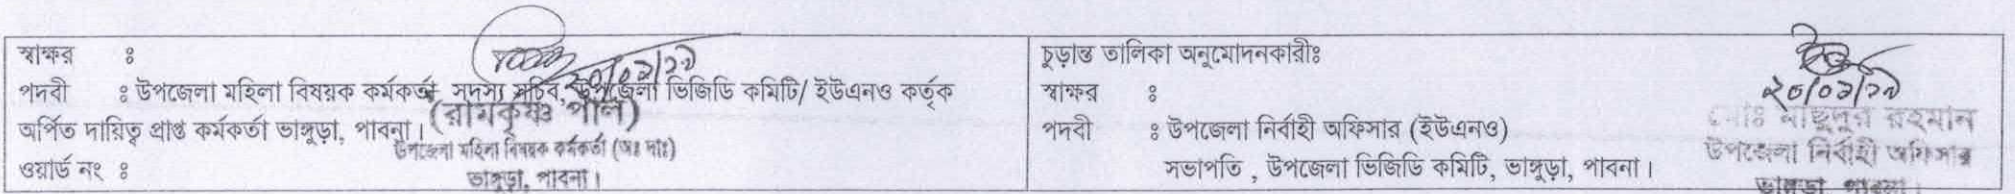 স্বাক্ষর ঃ
পদবী ঃ উপজেলা মহিলা বিষয়ক কর্মকর্তা সদস্য সচিব, উপজেলা ভিজিডি কমিটি/ ইউএনও কর্তৃক
অর্পিত দায়িত্ব প্রাপ্ত কর্মকর্তা ভাঙ্গুড়া, পাবনা।
(রামকৃষ্ণ পাল)
উপজেলা মহিলা বিষয়ক কর্মকর্তা (অঃ দাঃ)
ভাঙ্গুড়া, পাবনা।
ওয়ার্ড নং ঃ
চুড়ান্ত তালিকা অনুমোদনকারীঃ
স্বাক্ষর ঃ
পদবী ঃ উপজেলা নির্বাহী অফিসার (ইউএনও)
সভাপতি , উপজেলা ভিজিডি কমিটি, ভাঙ্গুড়া, পাবনা।
মোঃ মাছুদুর রহমান
উপজেলা নির্বাহী অফিসার
ভাঙ্গুড়া পাবনা।